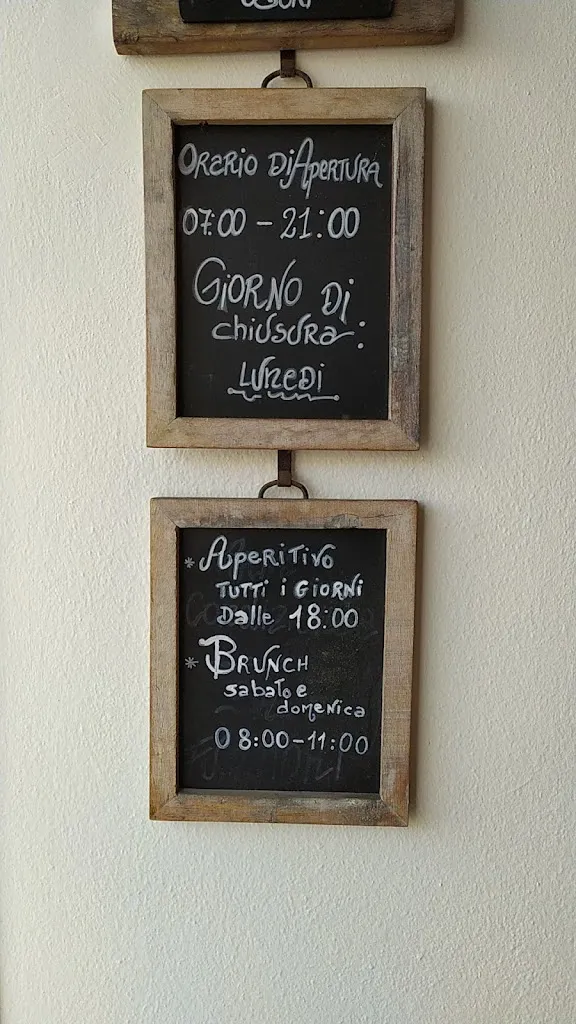 Orario Di Apertura
07:00 - 21:00
Giorno Di
chiusura:
Lunedi
* Aperitivo
tutti i Giorni
Dalle 18:00
* Brunch
sabato e
domenica
08:00-11:00